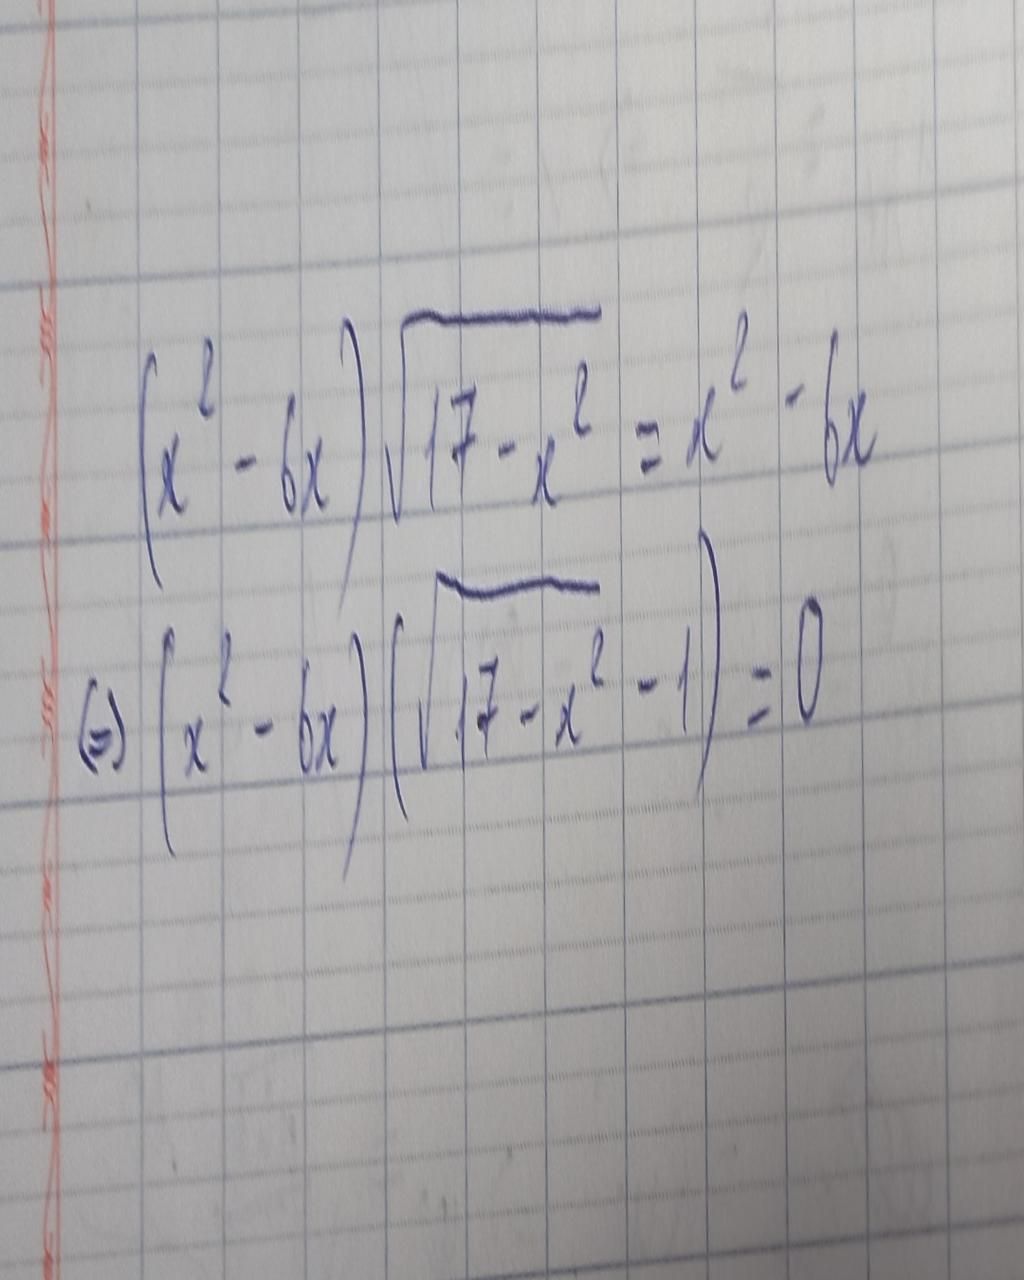 (x² - 6x)√(17 - x²) = x² - 6x
(=) (x² - 6x)(√(17 - x²) - 1) = 0